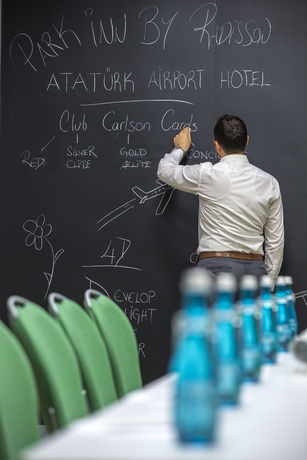 PARK INN BY Radisson
ATATÜRK AIRPORT HOTEL
Club Carlson Cards
RED SILVER ELITE GOLD ELITE CONC
4D
EVELOP
LIGHT